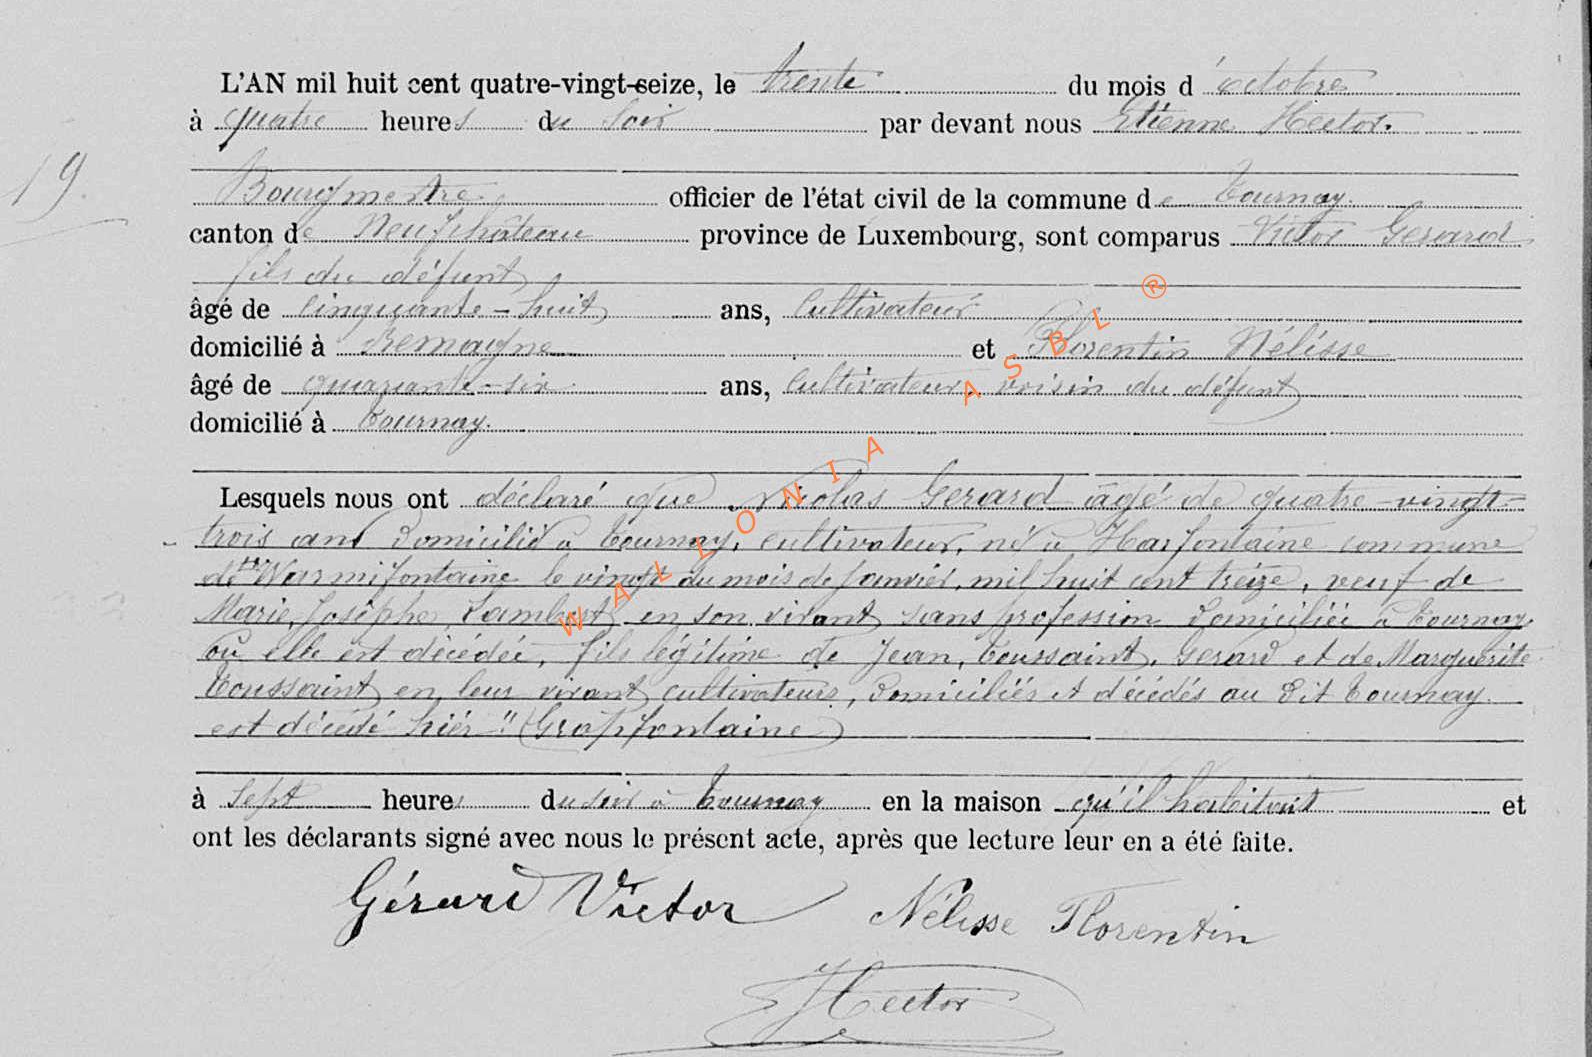 L'AN mil huit cent quatre-vingt-seize, le trente du mois d'octobre
à quatre heures du soir par devant nous Etienne Hector.
19.
Bourgmestre officier de l'état civil de la commune de Tournay.
canton de Neufchâteau province de Luxembourg, sont comparus Victor Gerard
fils du défunt
âgé de cinquante-huit ans, cultivateur
domicilié à Remagne et Florentin Nélisse
âgé de quarante-six ans, cultivateur voisin du défunt
domicilié à Tournay.
Lesquels nous ont déclaré que Nicolas Gerard âgé de quatre-vingt-
trois ans domicilié à Tournay, cultivateur, né à Harfontaine commune
de Warmifontaine le vingt du mois de Janvier, mil huit cent treize, veuf de
Marie, Josèphe, Lambert en son vivant sans profession domiciliée à Tournay
où elle est décédée, fils légitime de Jean, Toussaint, Gerard et de Marguerite
Toussaint en leur vivant cultivateurs, domiciliés et décédés au dit Tournay.
est décédé hier "(Grapfontaine)
à sept heures du soir à Tournay en la maison qu'il habitait et
ont les déclarants signé avec nous le présent acte, après que lecture leur en a été faite.
Gérard Victor Nélisse Florentin
Hector
WALLONIA ASBL ®